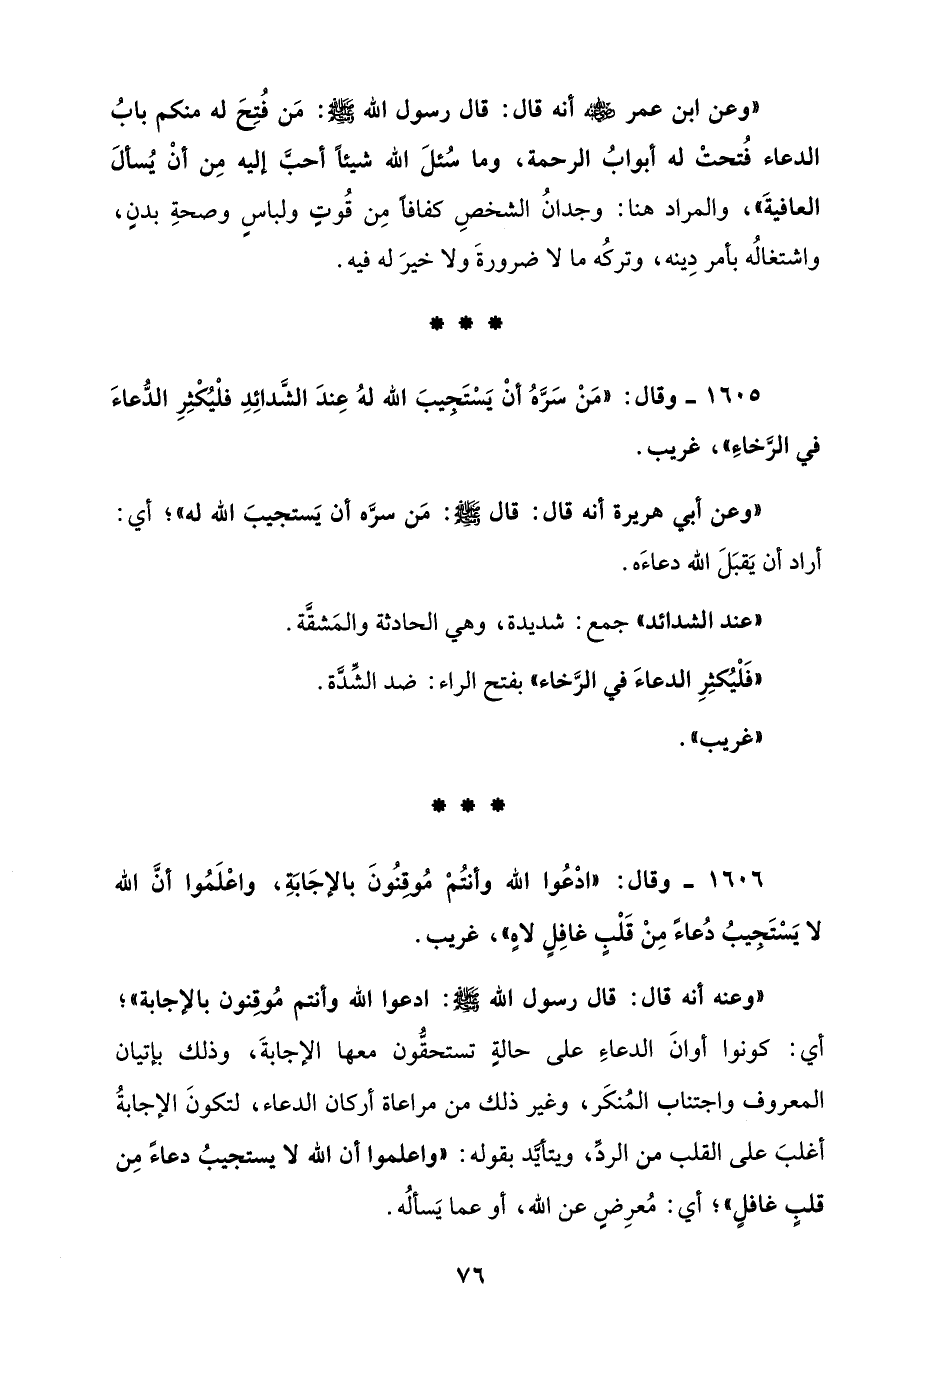 «وعن ابن عمر ﵁ أنه قال: قال رسول الله ﷺ: مَن فُتِحَ له منكم بابُ
الدعاء فُتحتْ له أبوابُ الرحمة، وما سُئلَ الله شيئاً أحبَّ إليه مِن أنْ يُسألَ
العافيةَ»، والمراد هنا: وجدانُ الشخصِ كفافاً مِن قُوتٍ ولباسٍ وصحةِ بدنٍ،
واشتغالُه بأمر دِينه، وتركُه ما لا ضرورةَ ولا خيرَ له فيه.
* * *
١٦٠٥ - وقال: «مَنْ سَرَّهُ أنْ يَسْتَجِيبَ الله لهُ عِندَ الشَّدائِدِ فلْيُكْثِرِ الدُّعاءَ
في الرَّخاءِ»، غريب.
«وعن أبي هريرة أنه قال: قال ﷺ: مَن سرَّه أن يَستجيبَ الله له»؛ أي:
أراد أن يَقبَلَ الله دعاءَه.
«عند الشدائد» جمع: شديدة، وهي الحادثة والمَشقَّة.
«فَلْيُكثِرِ الدعاءَ في الرَّخاء» بفتح الراء: ضد الشِّدَّة.
«غريب».
* * *
١٦٠٦ - وقال: «ادْعُوا الله وأنتُمْ مُوقِنُونَ بالإجَابَةِ، واعْلَمُوا أنَّ الله
لا يَسْتَجِيبُ دُعاءً مِنْ قَلْبٍ غافِلٍ لاهٍ»، غريب.
«وعنه أنه قال: قال رسول الله ﷺ: ادعوا الله وأنتم مُوقِنون بالإجابة»؛
أي: كونوا أوانَ الدعاءِ على حالةٍ تستحقُّون معها الإجابةَ، وذلك بإتيان
المعروف واجتناب المُنكَر، وغير ذلك من مراعاة أركان الدعاء، لتكونَ الإجابةُ
أغلبَ على القلب من الردِّ، ويتأيَّد بقوله: «واعلموا أن الله لا يستجيبُ دعاءً مِن
قلبٍ غافلٍ»؛ أي: مُعرِضٍ عن الله، أو عما يَسألُه.
٧٦